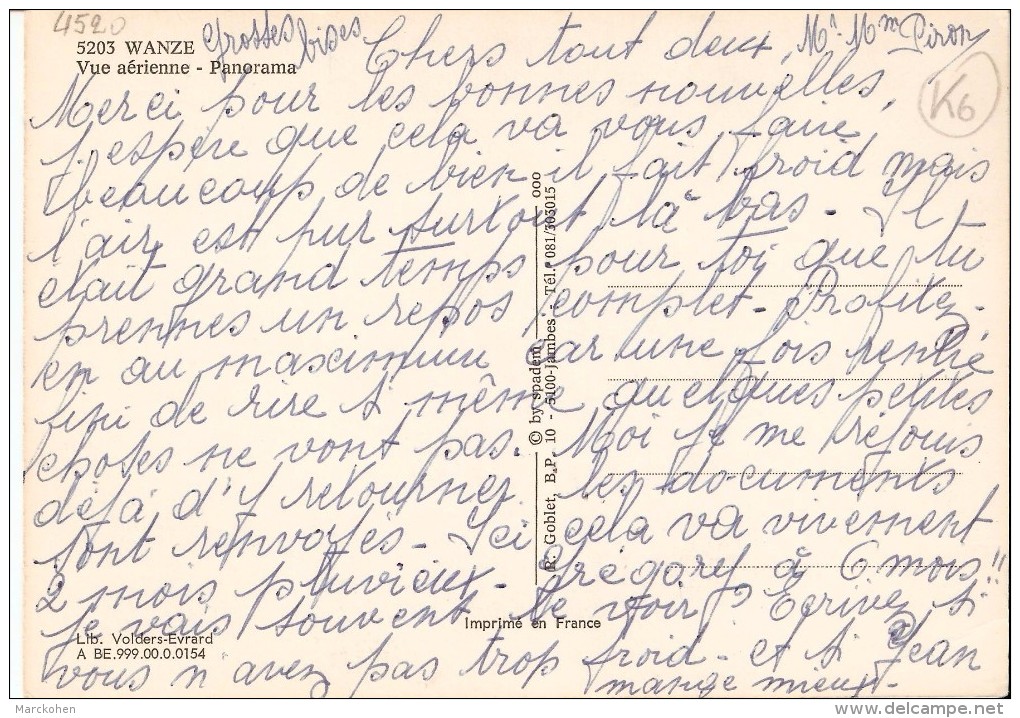 4520
5203 WANZE
Vue aérienne - Panorama
Grosses bises
Chers tout deux, Mr Mm Piron
K6
Merci pour les bonnes nouvelles,
j'espère que cela va vous faire
beaucoup de bien il fait froid mais
l'air est pur surtout là bas - Il
était grand temps pour toi que tu
prennes un repos complet - Profitez-
en au maximum car une fois rentré
fini de rire et même quelques petites
choses ne vont pas. Moi je me réjouis
déjà d'y retourner les documents
sont renvoyés - Ici cela va vivement
2 mois pluvieux - Grégory à 6 mois!!
je vais souvent le voir Ecrivez si
vous n'avez pas trop froid - et si Jean
mange mieux -
© by spadem ooo
R. Goblet, B.P. 10 - 5100-Jambes - Tél. 081/303015
Imprimé en France
Lib. Volders-Evrard
A BE.999.00.0.0154
Marckohen
delcampe.net